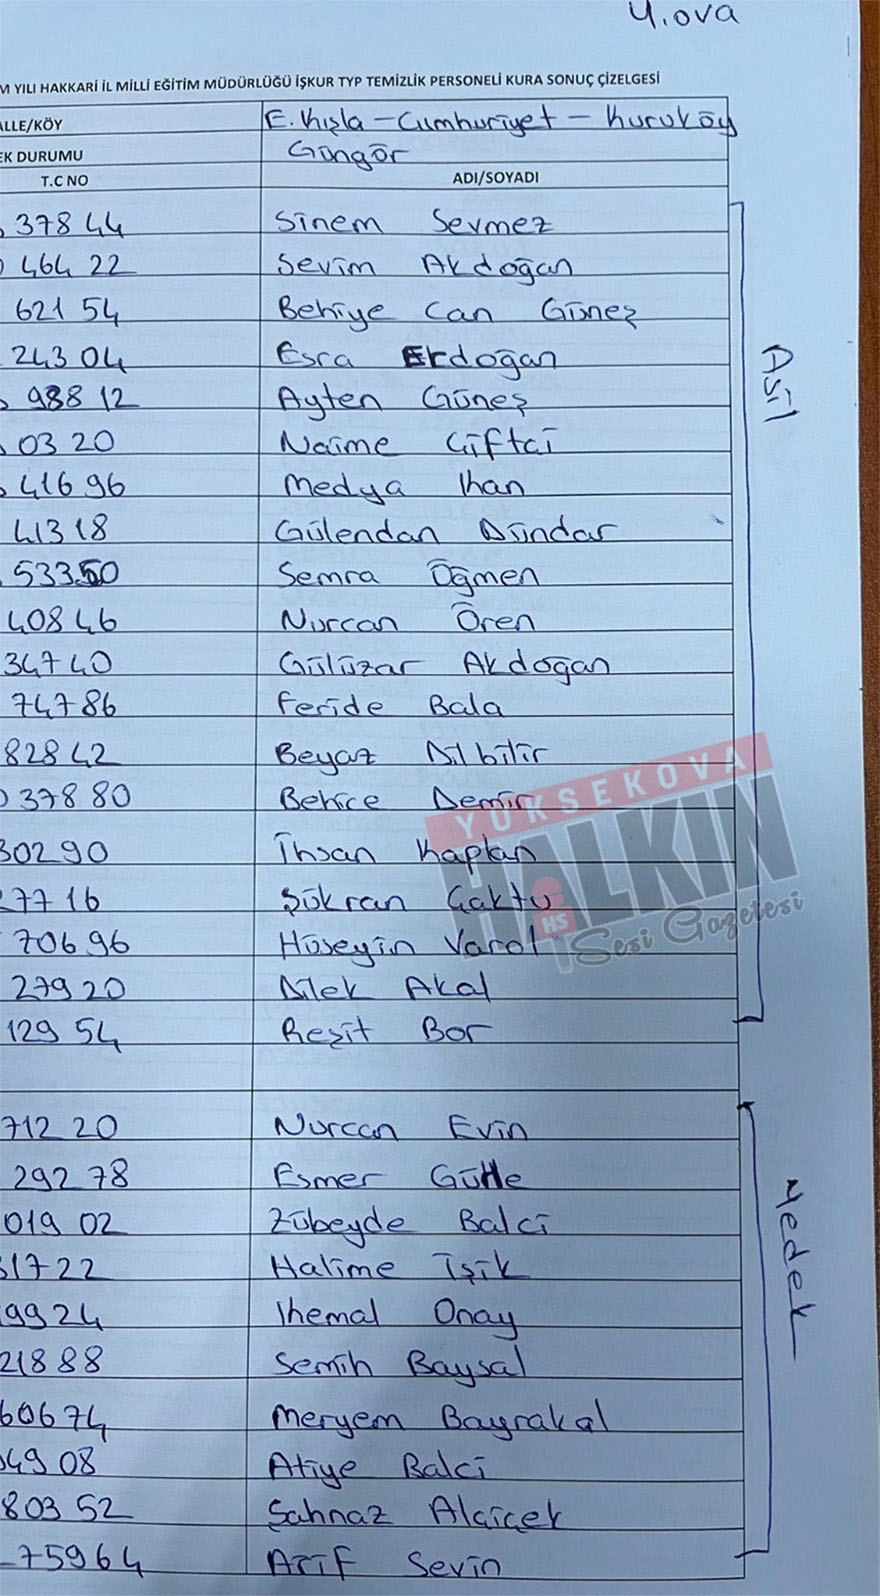 Y.ova
M YILI HAKKARİ İL MİLLİ EĞİTİM MÜDÜRLÜĞÜ İŞKUR TYP TEMİZLİK PERSONELİ KURA SONUÇ ÇİZELGESİ
ALLE/KÖY E. Kışla - Cumhuriyet - Kuruköy
EK DURUMU Güngör
T.C NO ADI/SOYADI
37844 Sinem Sevmez
46422 Sevim Akdoğan
62154 Behiye Can Güneş
24304 Esra Erdoğan
98812 Ayten Güneş
Asil
0320 Naime Çiftçi
41696 Medya Ihan
41318 Gülendan Dündar
53350 Semra Öğmen
40846 Nurcan Ören
34740 Gülüzar Akdoğan
74786 Feride Bala
82842 Beyaz Dilbilir
37880 Behice Demir
YÜKSEKOVA
HALKIN
HS
Sesi Gazetesi
30290 İhsan Kaplan
7716 Şükran Çaktu
70696 Hüseyin Varol
27920 Dilek Akal
12954 Reşit Bor
71220 Nurcan Evin
29278 Esmer Gülle
01902 Zübeyde Balci
Yedek
1722 Halime işik
9924 Ihemal Onay
21888 Semih Baysal
60674 Meryem Bayrakal
4908 Atiye Balci
80352 Şahnaz Alçiçek
75964 Arif Sevin